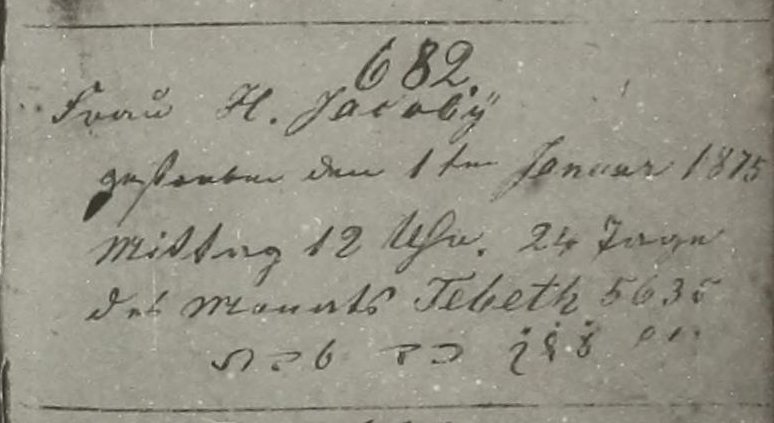 682
Frau H. Jacobÿ
gestorben den 1ten Januar 1875
Mittag 12 Uhr. 24 Tage
des Monats Tebeth 5635
כד טבת